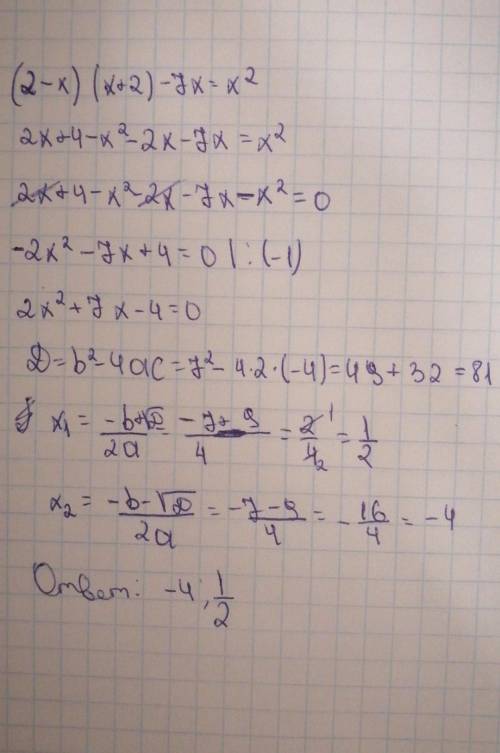 (2-x)(x+2)-7x=x²
2x+4-x²-2x-7x=x²
2x+4-x²-2x-7x-x²=0
-2x²-7x+4=0 | :(-1)
2x²+7x-4=0
D=b²-4ac=7²-4·2·(-4)=49+32=81
x₁ = (-b+√D)/2a = (-7+9)/4 = 2/4 = 1/2
x₂ = (-b-√D)/2a = (-7-9)/4 = -16/4 = -4
Ответ: -4; 1/2